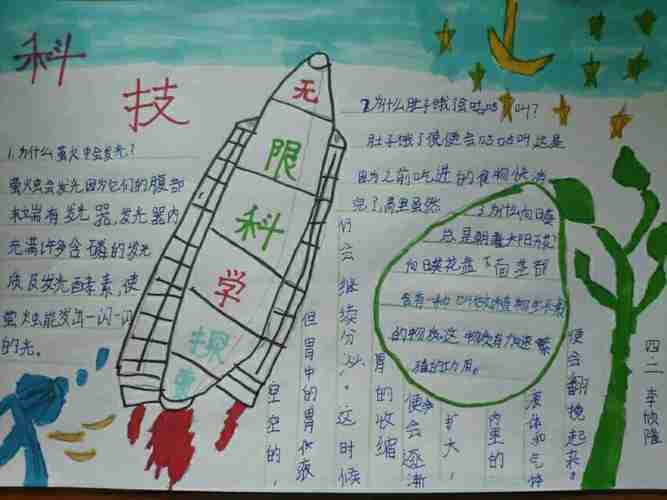 科
技
无
限
科
学
探
1.为什么萤火虫会发光?
萤火虫会发光因为它们的腹部
末端有发光器,发光器内
充满许多含磷的发光
质及发光酵素,使
萤火虫能发出一闪一闪
的光。
2.为什么肚子饿会咕咕叫?
肚子饿了便会咕咕叫这是
因为之前吃进的食物快消
完了胃里虽然
空空的,
但胃中的胃依液
仍会继续分泌。这时候
胃的收缩
便会逐渐
扩大,
内里的
液体和气体
便会翻搅起来。
3.为什么向日葵
总是朝着太阳开花?
向日葵花盘下面茎部
含有一种
的物质这物质有加速繁
殖的功用。
四.二 李 隆